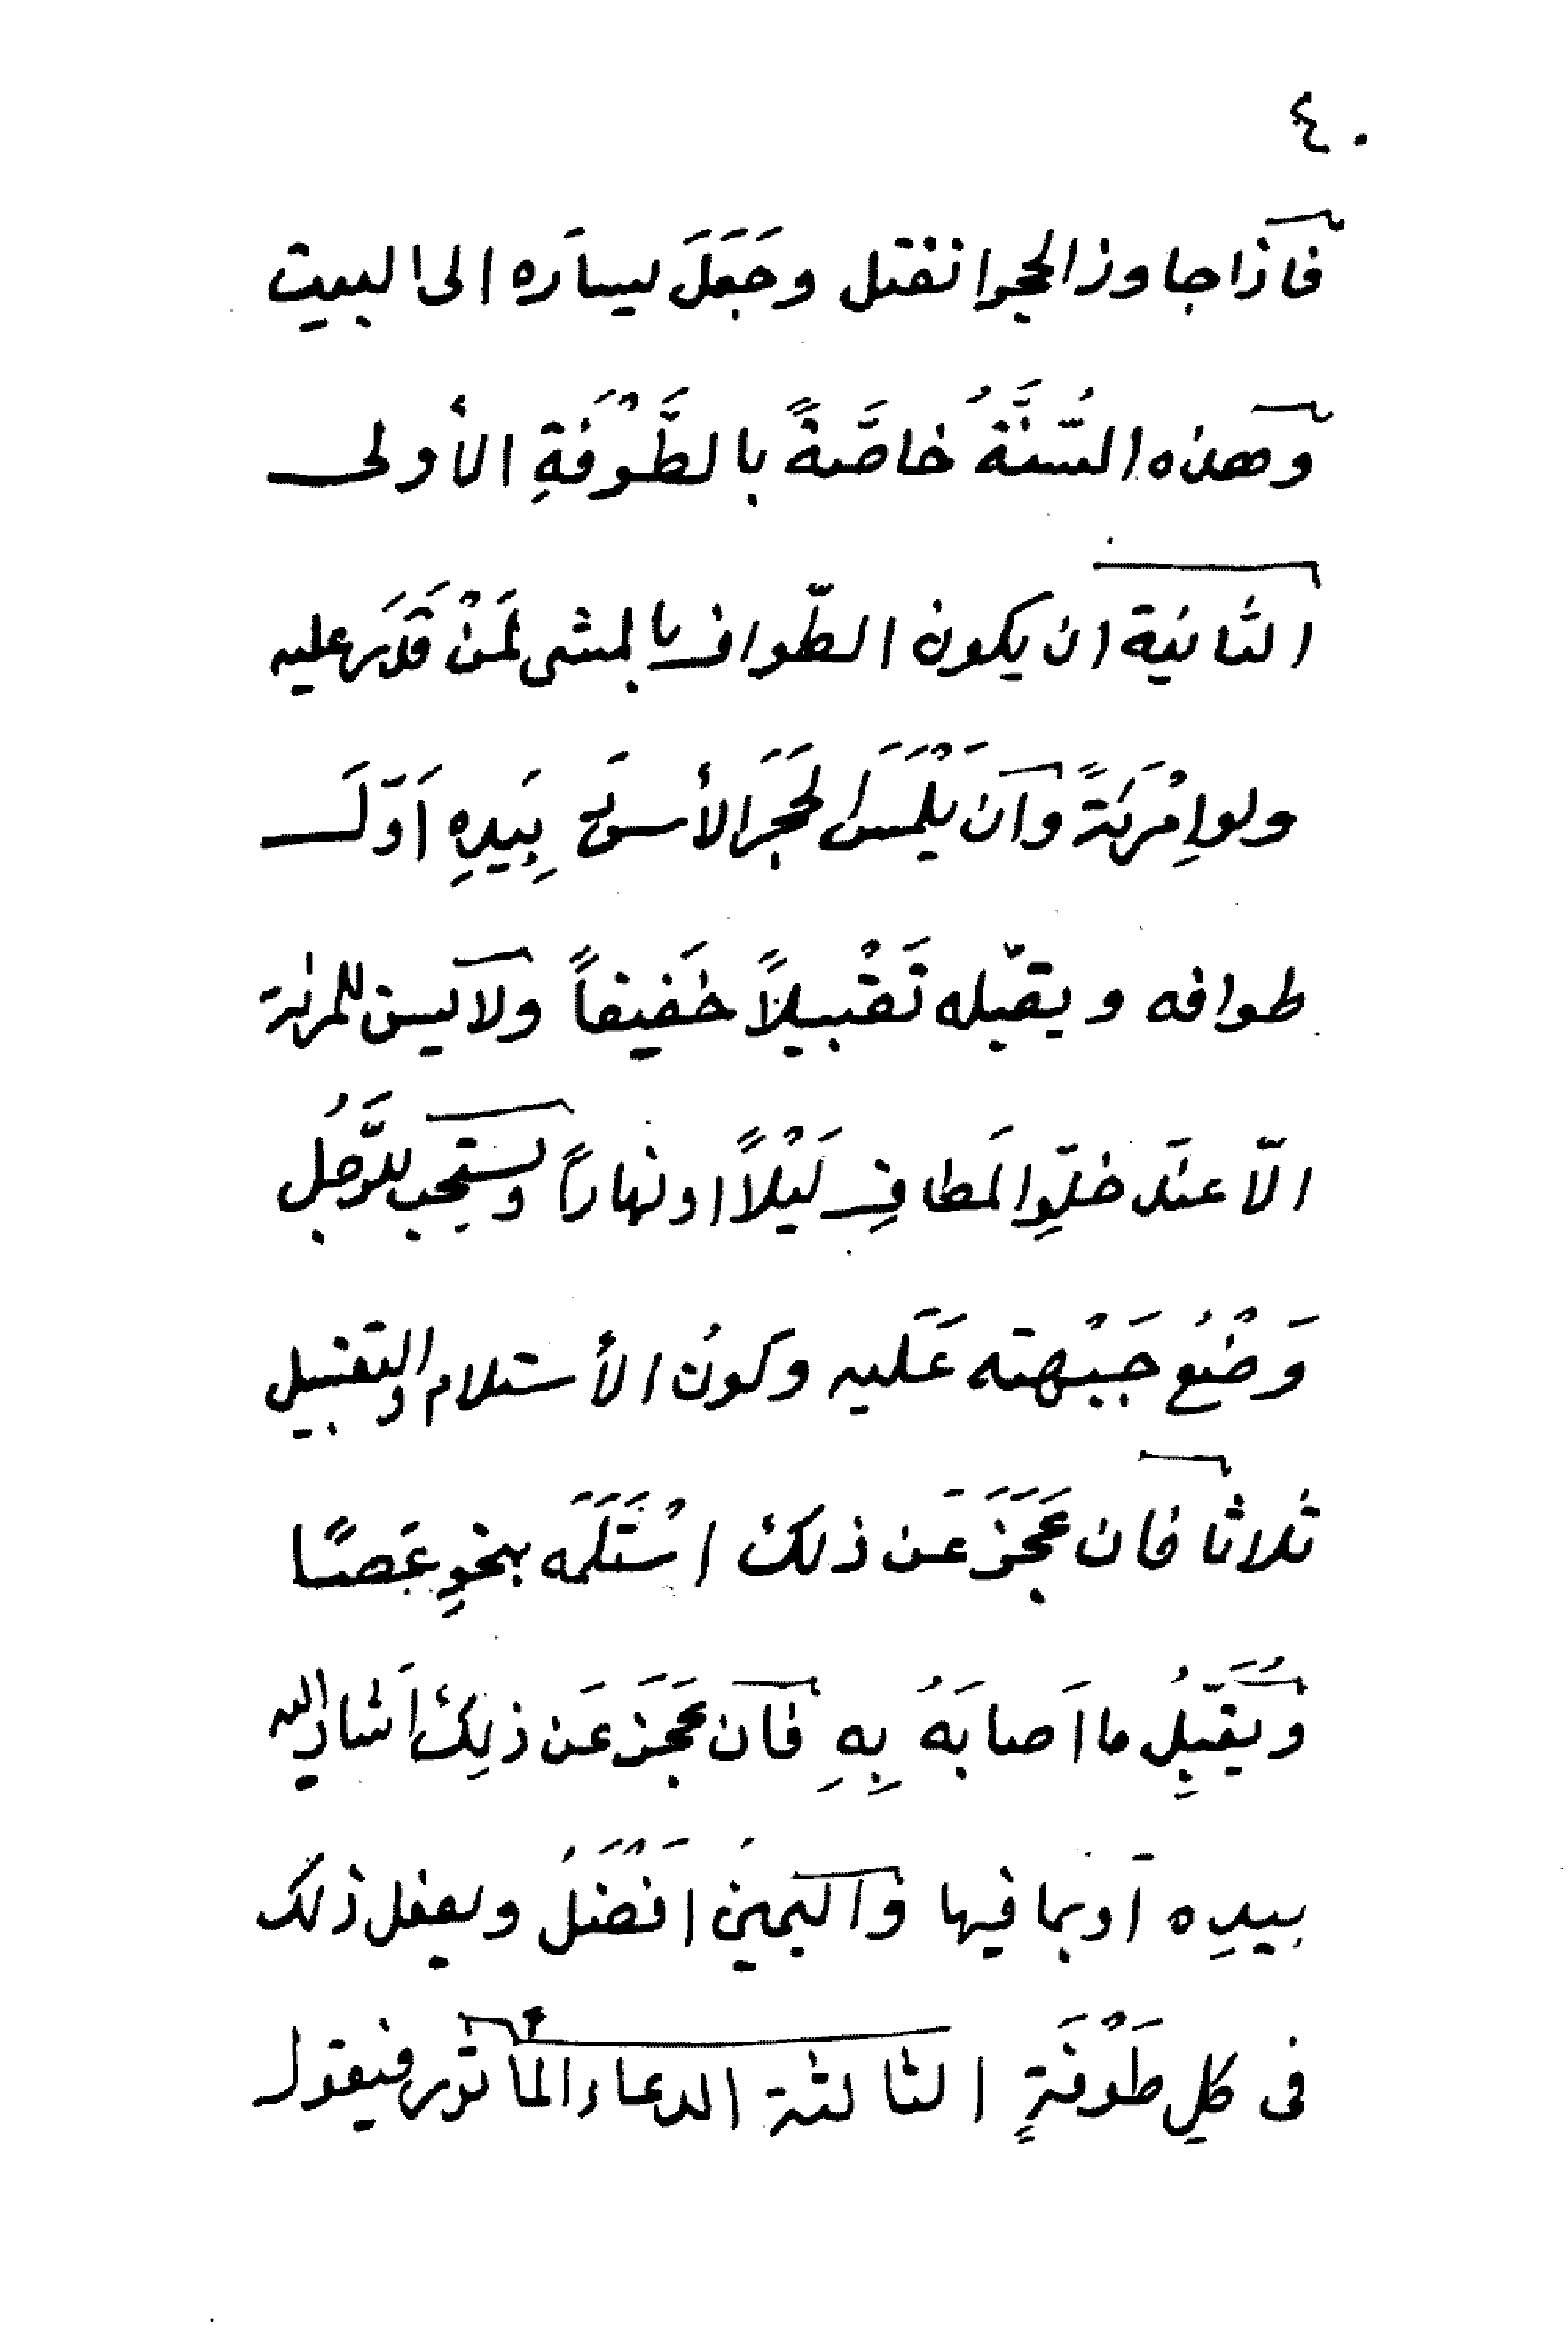 ٤٠
فاذا جاوز الحجر انفتل وجَعَلَ يسارَه الى البيت
وهذه السُّنَّةُ خاصَّةً بالطَّوْفَةِ الأولى
الثانية ان يكون الطّواف بالمشى لمَنْ قَدَرَ عليه
ولو اِمْرَئَةً وَانَ يَلْمَسَ الحَجَرَ الأسوَد بِيَدِهِ اَوّلَ
طوافه ويقبّله تَقْبيلاً خَفيفاً ولا يسن للمرئة
الّا عندَ خلّوِ المَطافِ لَيْلاً او نهاراً ويستحب للرَّجُلِ
وَضْعُ جَبْهته عَلَيه وكونُ الأستلام والتقبيل
ثلاثا فان عَجَزَ عَن ذلك اسْتَلَمَه بنحوِ عَصًا
وَيُقَبِّلُ ما اَصابَهُ بِهِ فَان عَجَزَ عَن ذلِكَ اَشار اليه
بيدِه اَو بما فيها وَاليَمينُ افْضَلُ ويفعل ذلك
فى كلِ طَوْفَةٍ الثالثة الدعاء المأثور فيقول